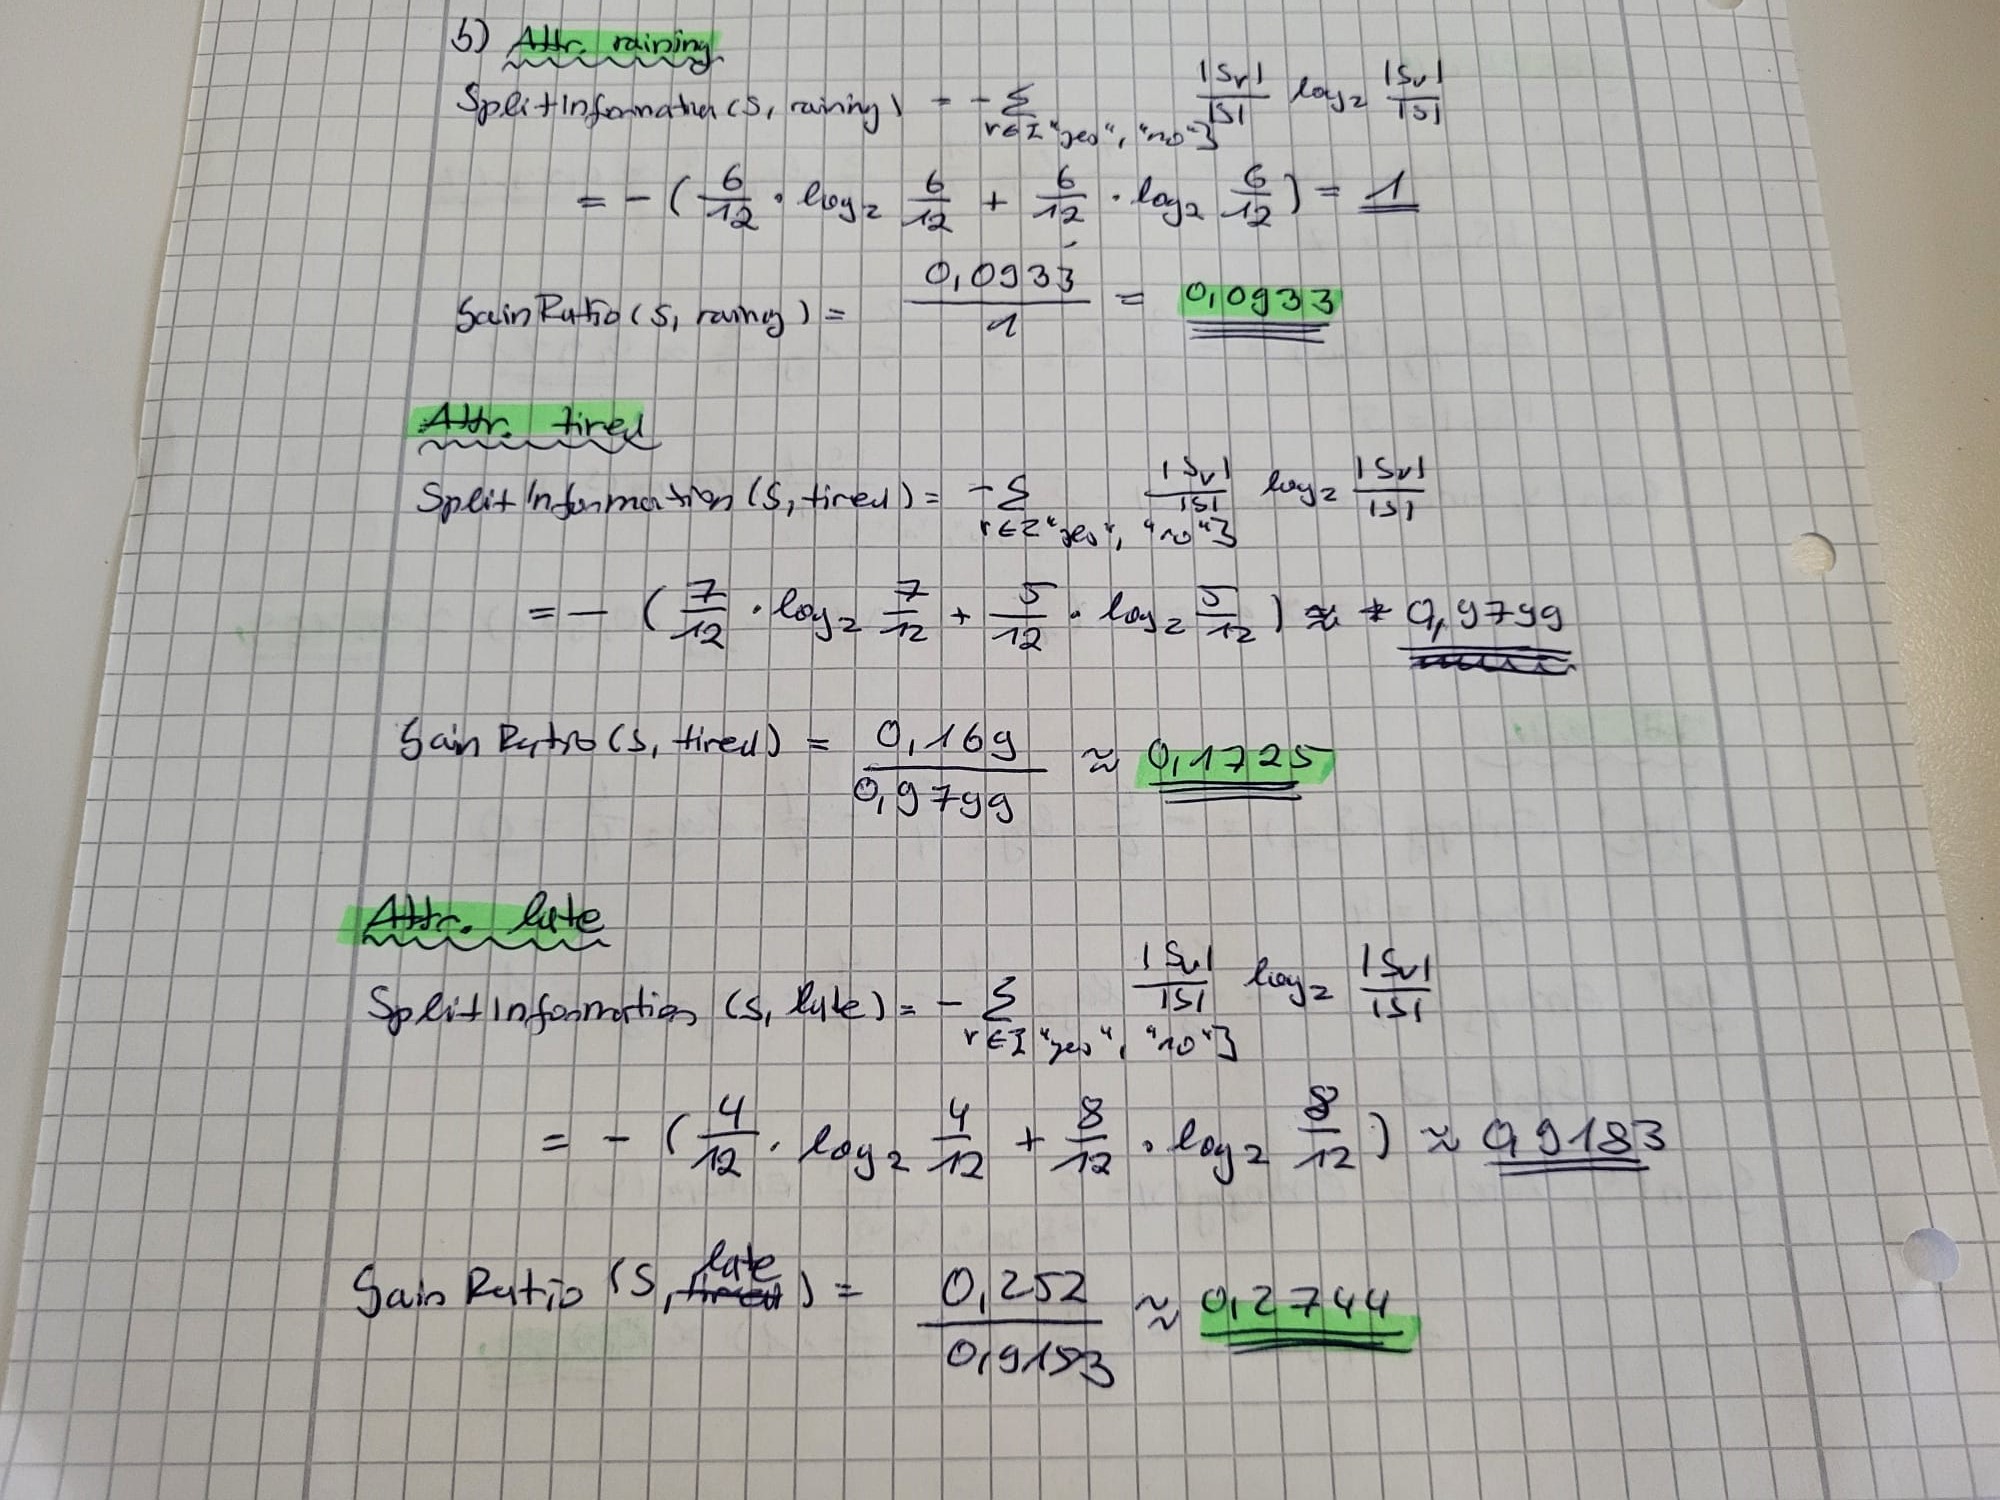 b) Attr. raining
SplitInformation (S, raining) = - Σ v∈{"yes", "no"} |Sv|/|S| log₂ |Sv|/|S|
= - ( 6/12 · log₂ 6/12 + 6/12 · log₂ 6/12 ) = 1
GainRatio (S, raining) = 0,0933 / 1 = 0,0933
Attr. tired
SplitInformation (S, tired) = - Σ v∈{"yes", "no"} |Sv|/|S| log₂ |Sv|/|S|
= - ( 7/12 · log₂ 7/12 + 5/12 · log₂ 5/12 ) ≈ 0,9799
GainRatio (S, tired) = 0,169 / 0,9799 ≈ 0,1725
Attr. late
SplitInformation (S, late) = - Σ v∈{"yes", "no"} |Sv|/|S| log₂ |Sv|/|S|
= - ( 4/12 · log₂ 4/12 + 8/12 · log₂ 8/12 ) ≈ 0,9183
GainRatio (S, late) = 0,252 / 0,9183 ≈ 0,2744